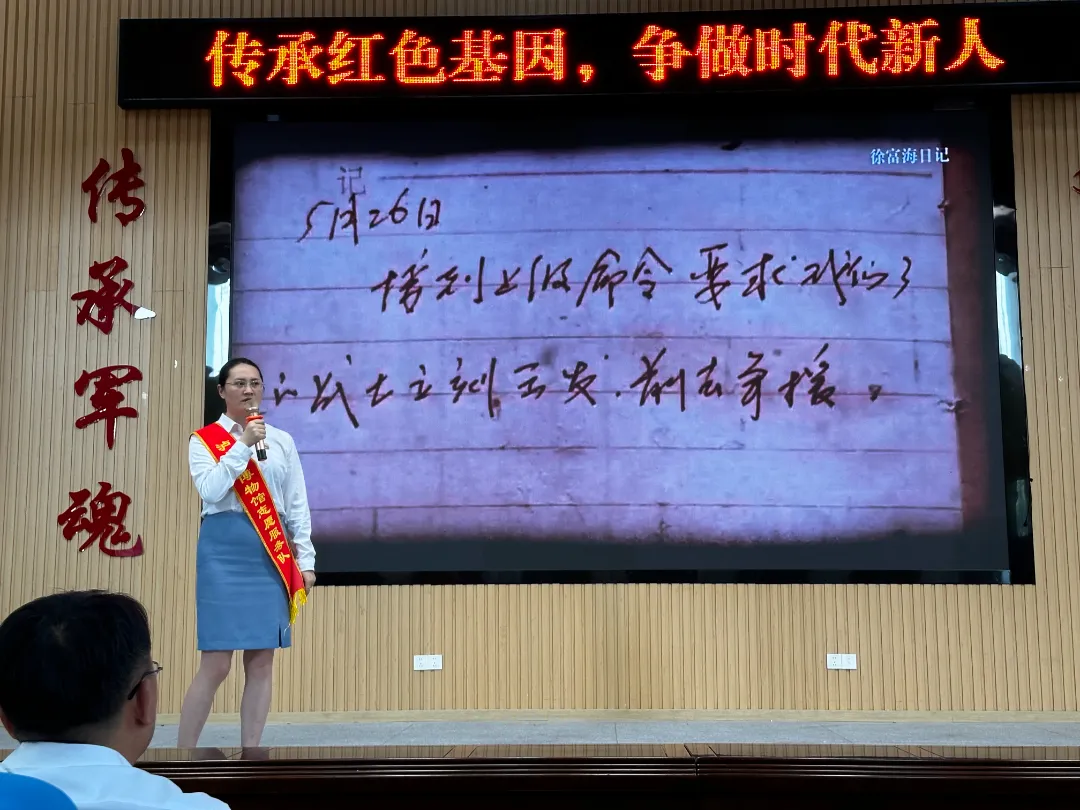 传承红色基因，争做时代新人
徐富海日记
记
5月26日
接到上级命令 要求我们
战士立刻出发.前去援。
传承军魂
博物馆志愿服务队